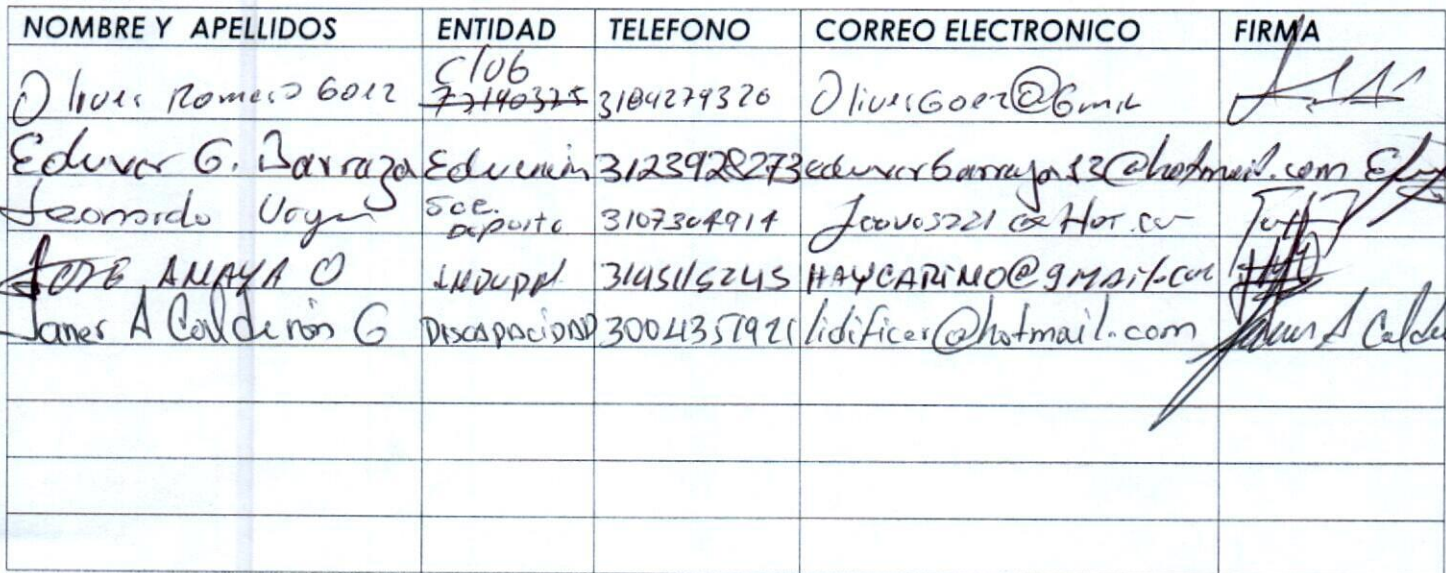 NOMBRE Y APELLIDOS ENTIDAD TELEFONO CORREO ELECTRONICO FIRMA
Oliver Romero Goez Club 77190375 3184279320 OliverGoez@Gmil
Eduver G. Barraza Educación 3123928273 eduverbarraza13@hotmail.com
Leonardo Soc. Deporte 3107304914
JOSE ANAYA O INDUPAL 3145115245 HAYCARIMO@gmail.com
Janer A Calderón G DISCAPACIDAD 3004351921 lidificer@hotmail.com Janer A Calde